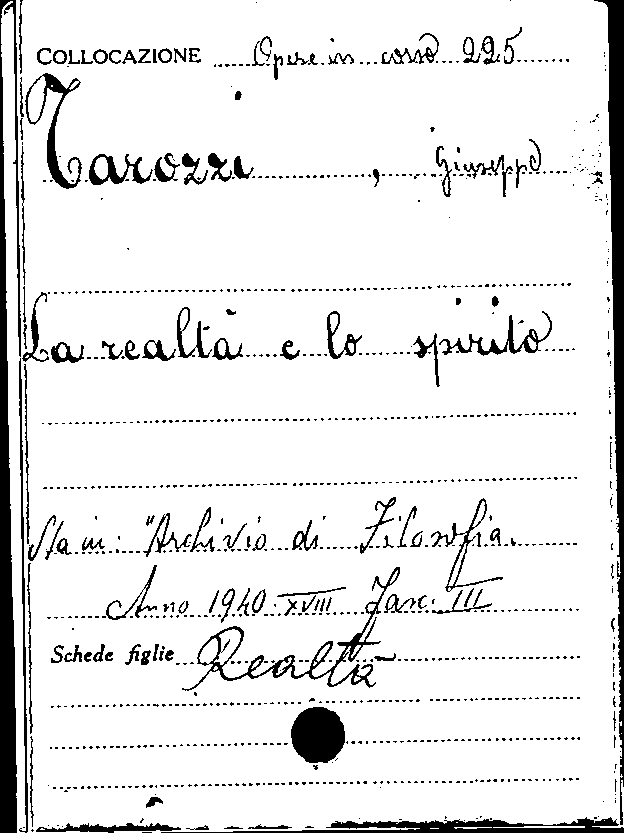 COLLOCAZIONE Opere in corso 225
Tarozzi, Giuseppe
La realtà e lo spirito
Sta in: "Archivio di Filosofia.
Anno 1940-XVIII Fasc. III
Schede figlie Realtà